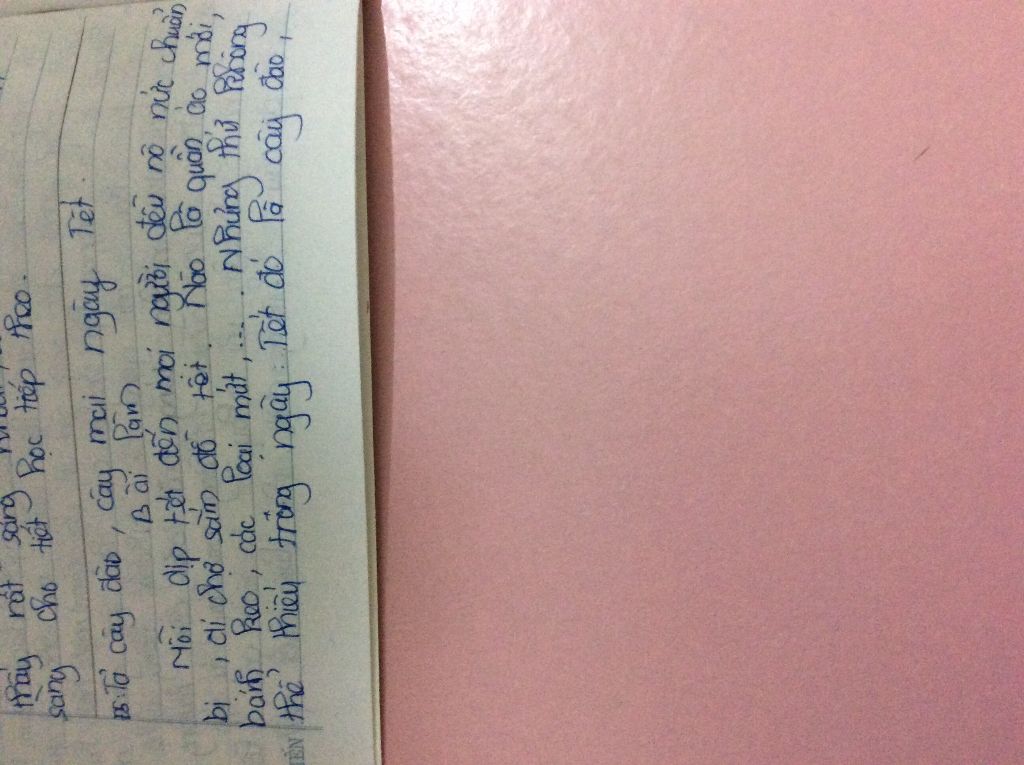 thấy rất sáng
sang cho tiết học tiếp theo.
Đề: Tả cây đào, cây mai ngày Tết.
Bài làm
Mỗi dịp tết đến mọi người đều nô nức chuẩn
bị, đi chợ sắm đồ tết. Nào là quần áo mới,
bánh kẹo, các loại mứt,... Những thứ không
thể thiếu trong ngày Tết đó là cây đào,